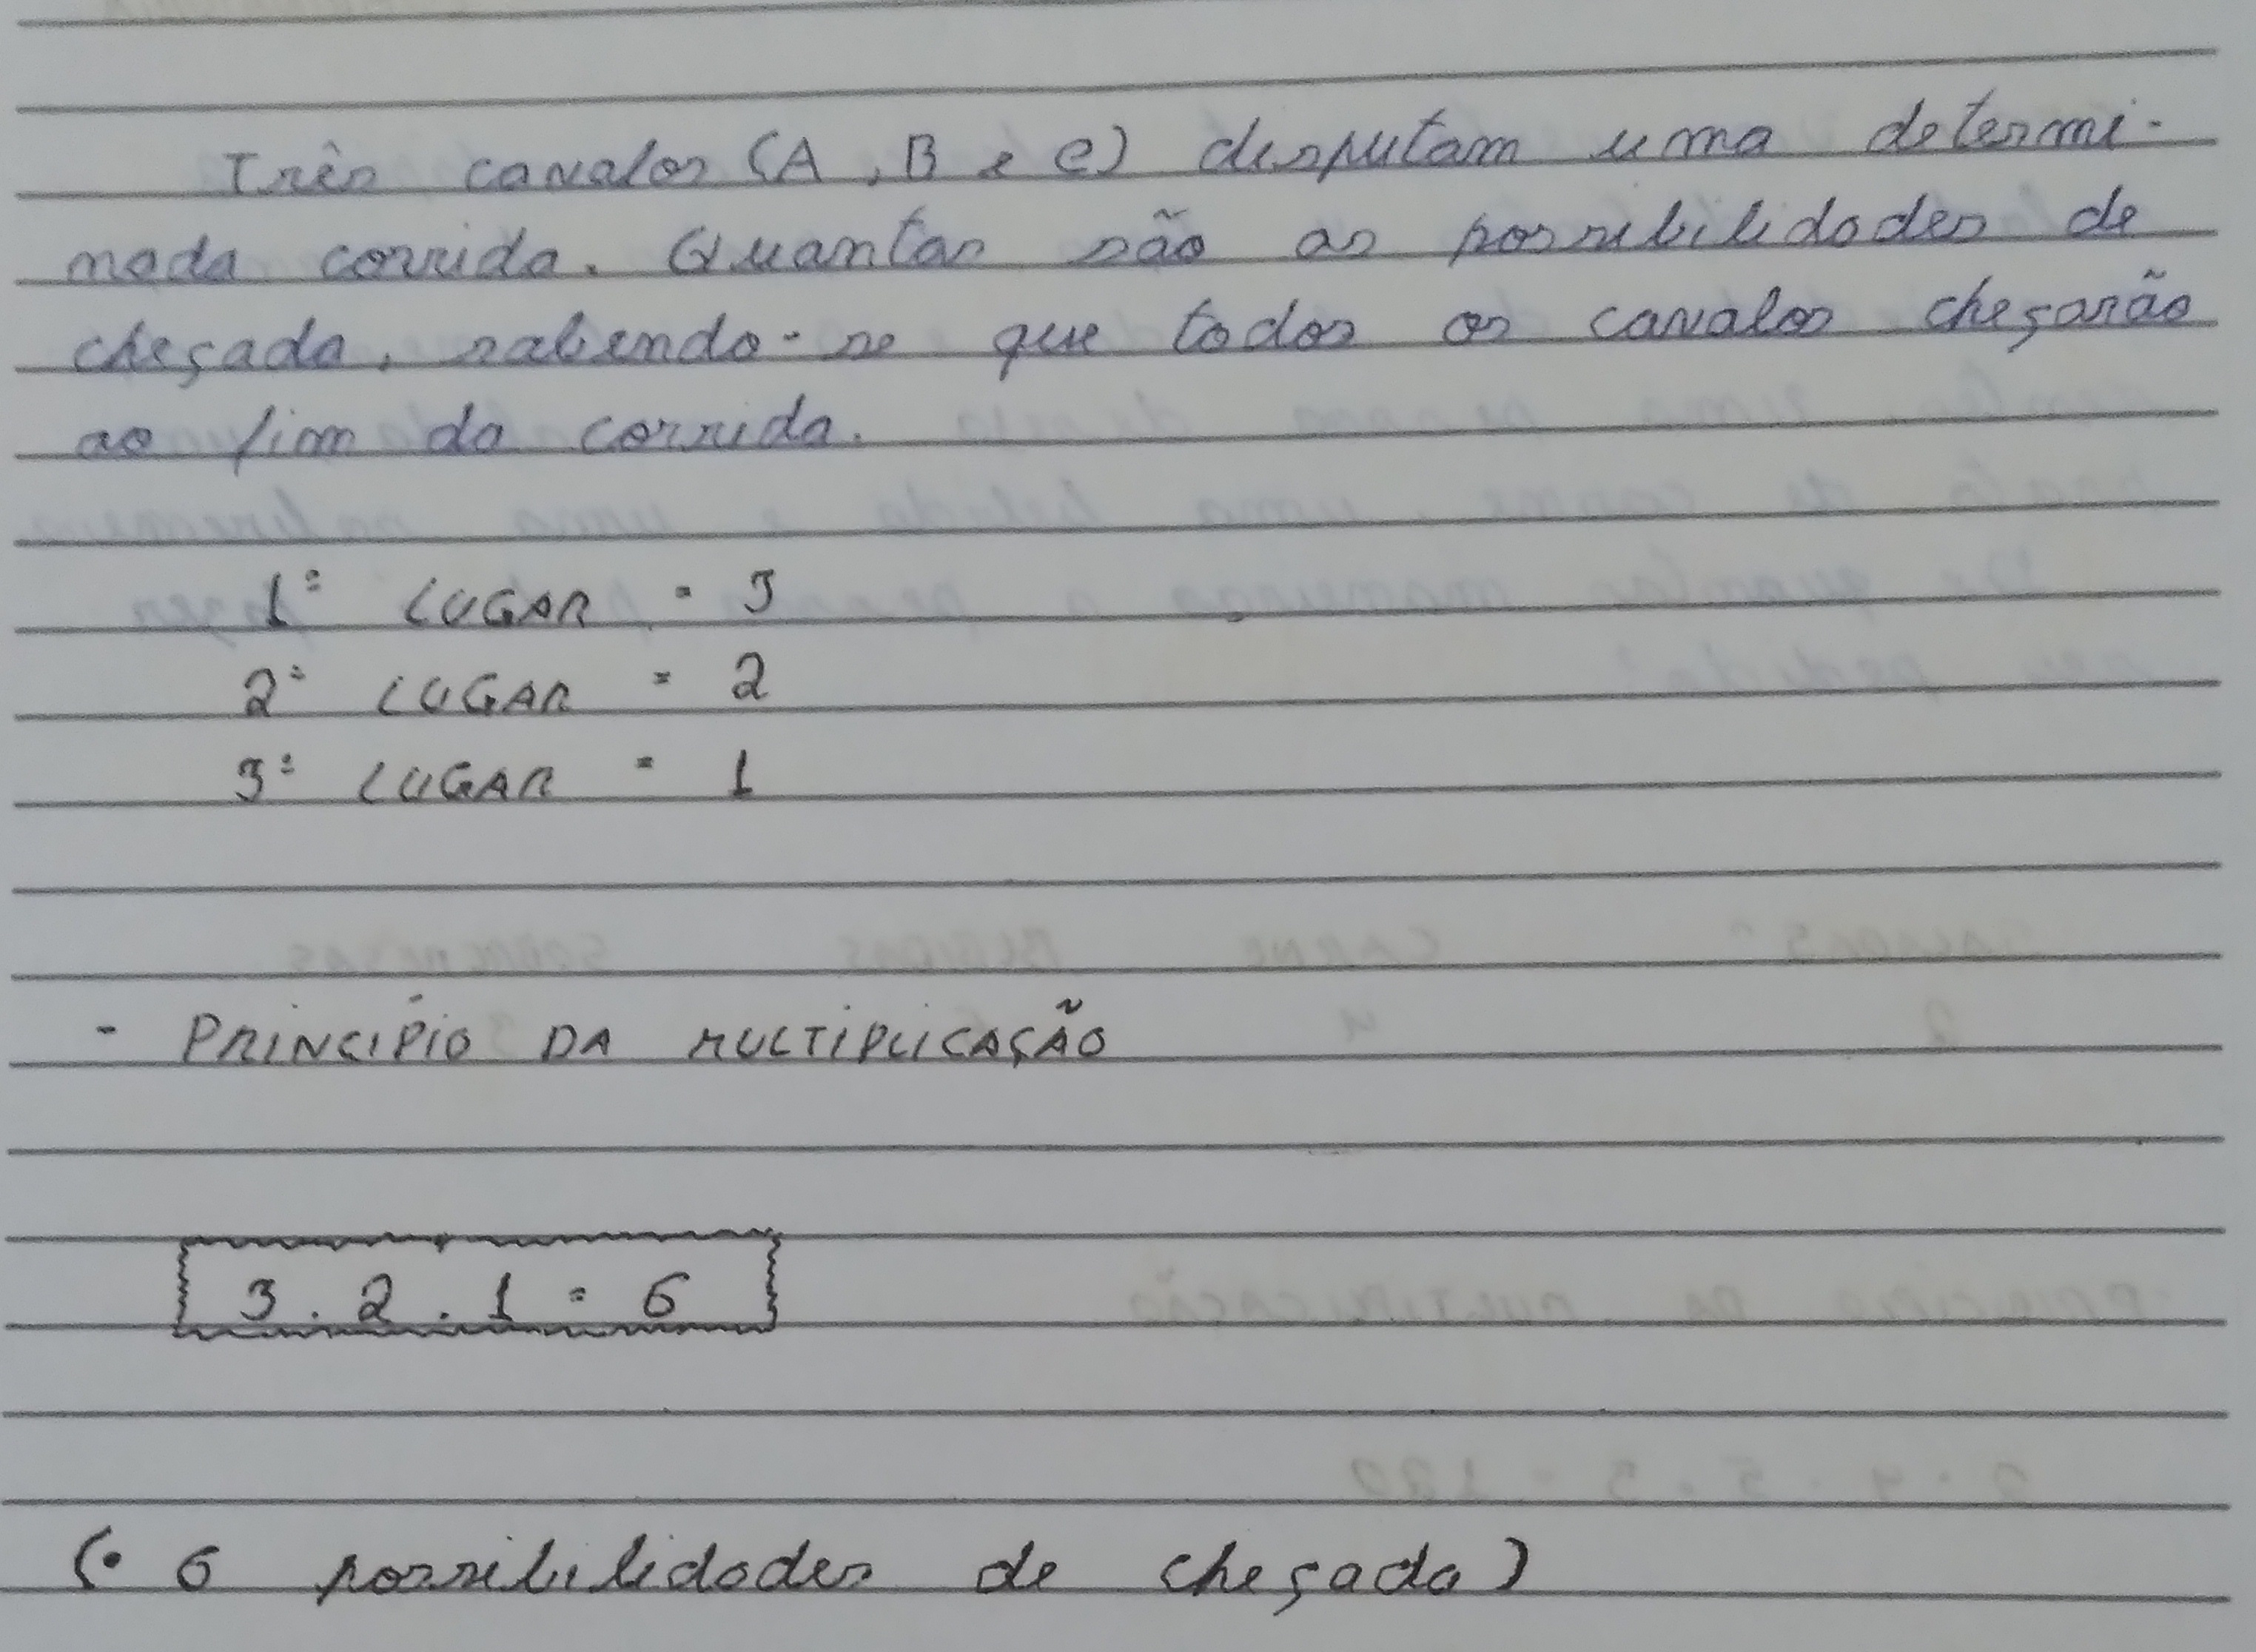 Três cavalos (A, B e C) disputam uma determi-
nada corrida. Quantas são as possibilidades de
chegada, sabendo-se que todos os cavalos chegarão
ao fim da corrida.
1º LUGAR = 3
2º LUGAR = 2
3º LUGAR = 1
- PRINCÍPIO DA MULTIPLICAÇÃO
3 . 2 . 1 = 6
(• 6 possibilidades de chegada)